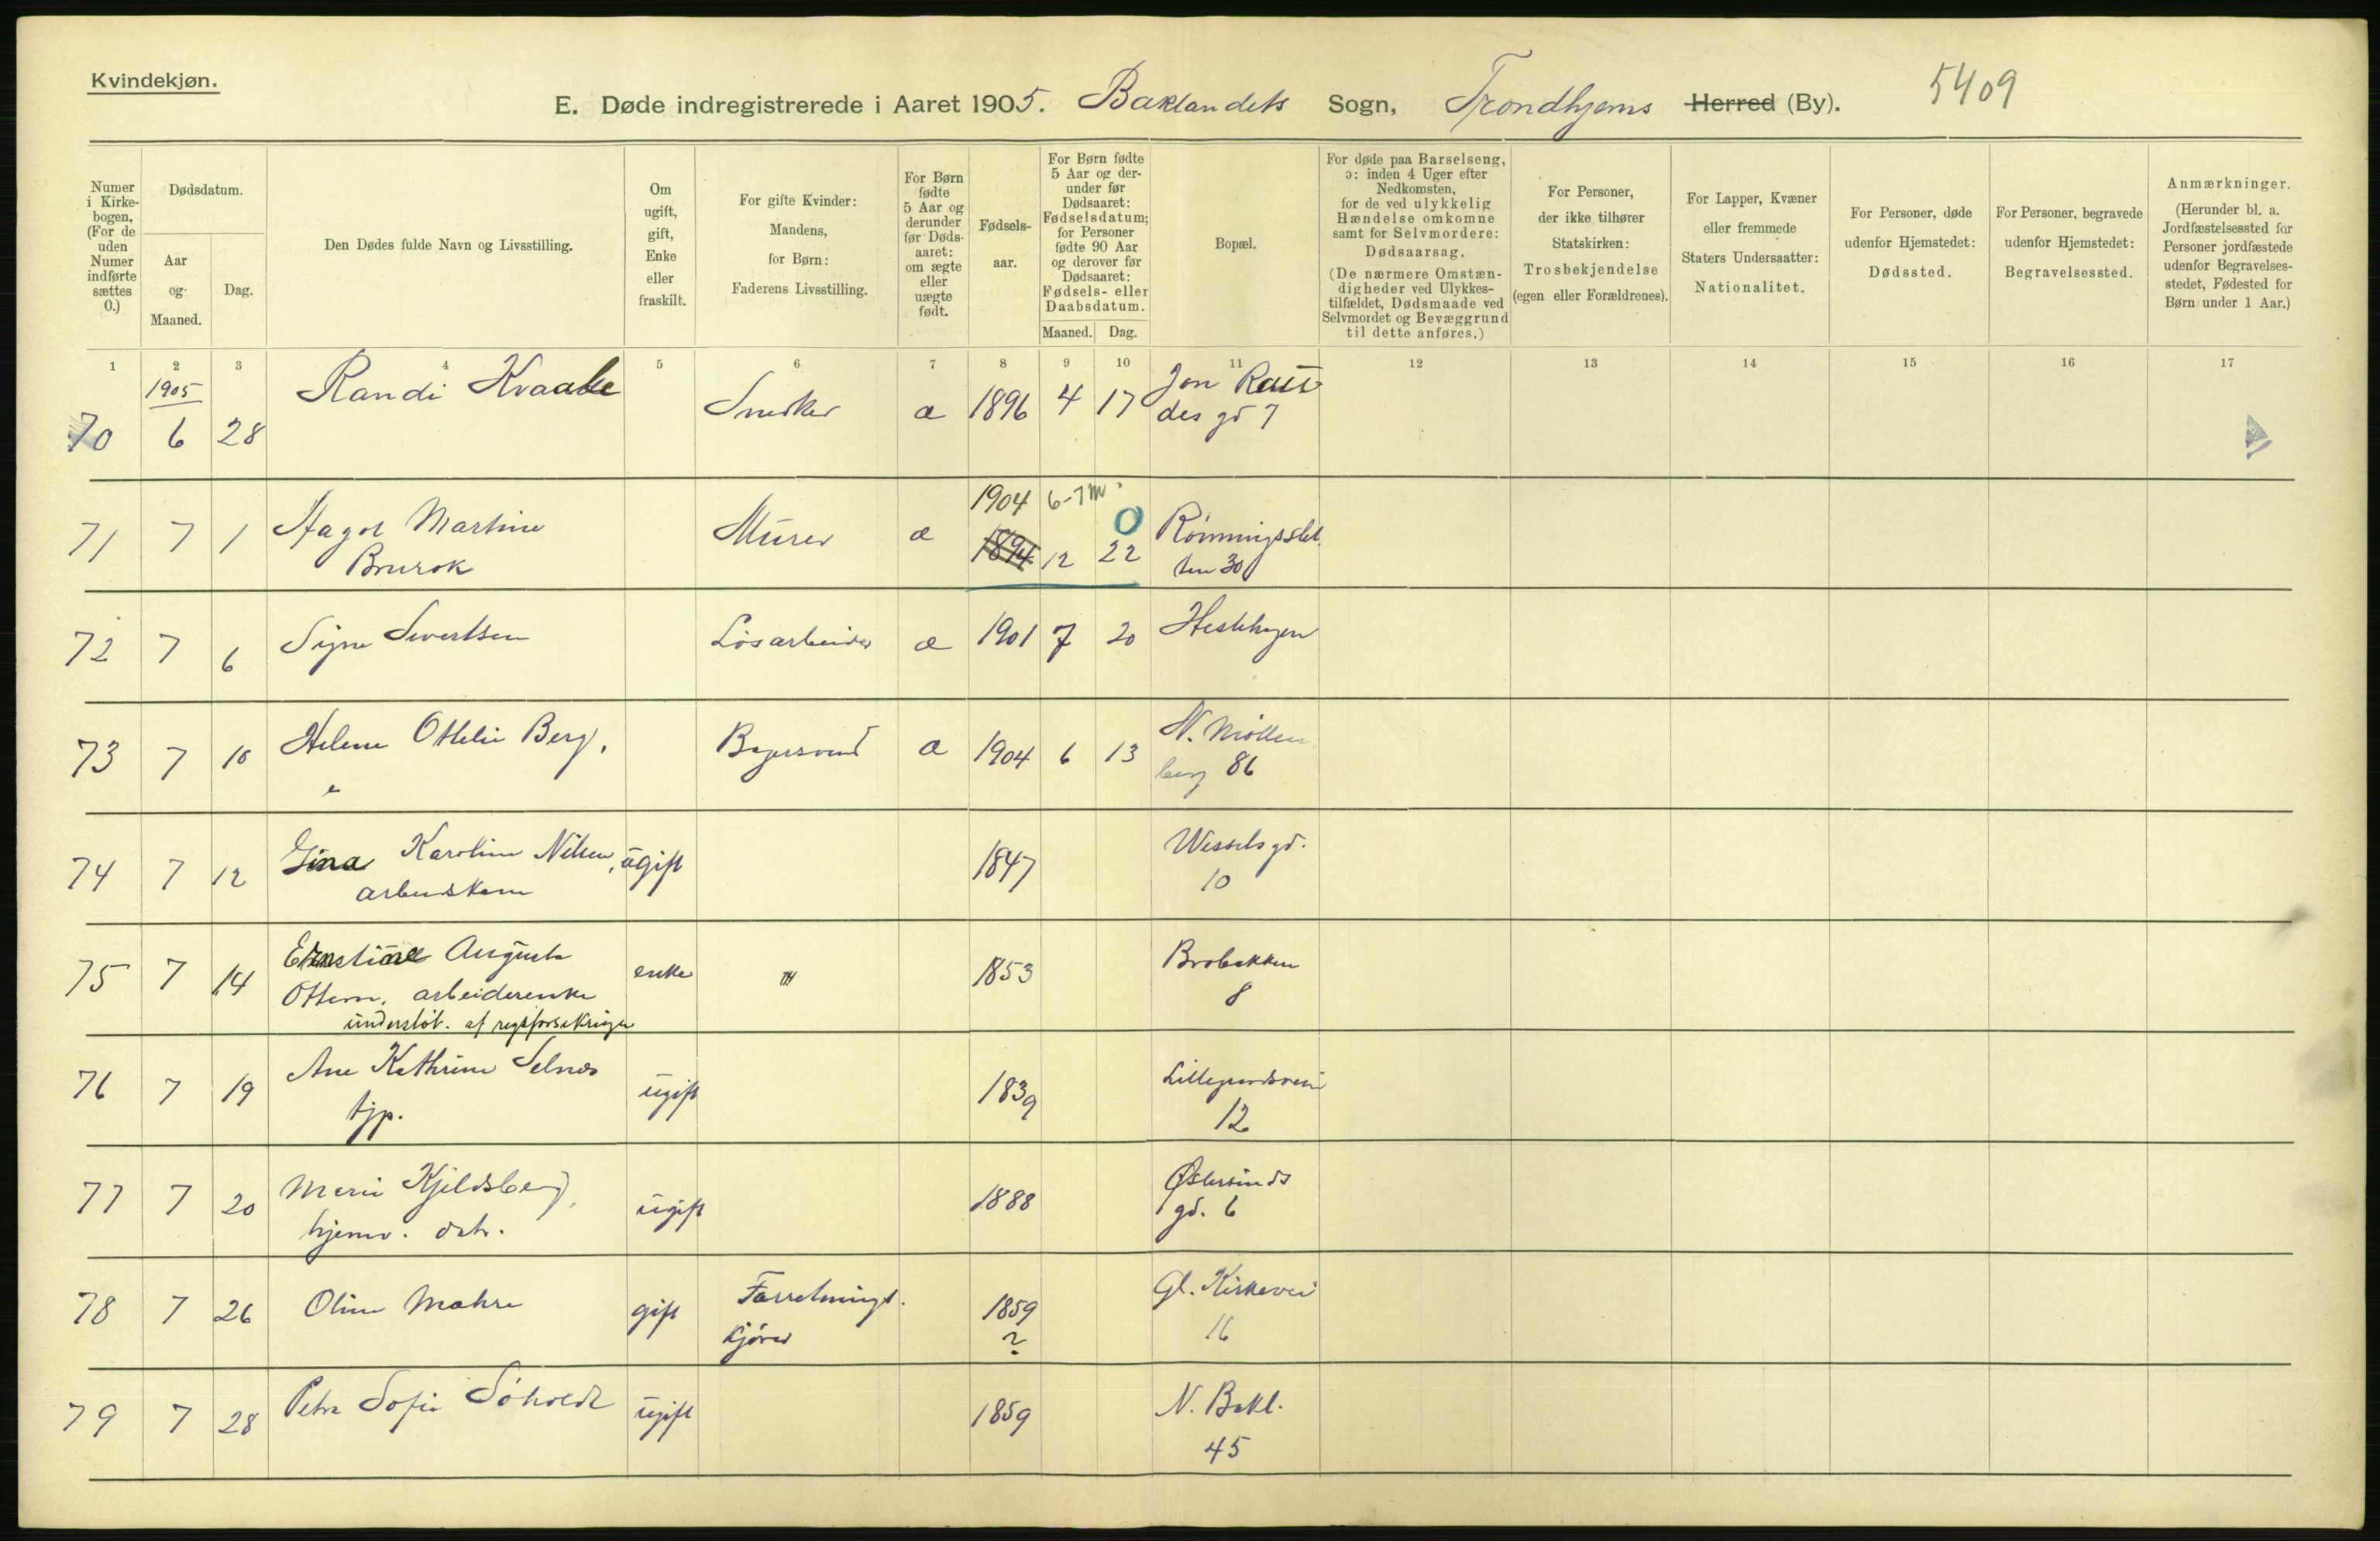 Kvindekjøn.
E. Døde indregistrerede i Aaret 1905. Baklandets Sogn, Trondhjems Herred (By). 5409
Numer i Kirkebogen. (For de uden Numer indførte sættes 0.)
Dødsdatum.
Aar og Maaned.
Dag.
Den Dødes fulde Navn og Livsstilling.
Om ugift, gift, Enke eller fraskilt.
For gifte Kvinder: Mandens, for Børn: Faderens Livsstilling.
For Børn fødte 5 Aar og derunder før Dødsaaret: om ægte eller uægte født.
Fødselsaar.
For Børn fødte 5 Aar og derunder før Dødsaaret: Fødselsdatum; for Personer fødte 90 Aar og derover før Dødsaaret: Fødsels- eller Daabsdatum.
Maaned. Dag.
Bopæl.
For døde paa Barselseng, ɔ: inden 4 Uger efter Nedkomsten, for de ved ulykkelig Hændelse omkomne samt for Selvmordere: Dødsaarsag.
(De nærmere Omstændigheder ved Ulykkestilfældet, Dødsmaade ved Selvmordet og Bevæggrund til dette anføres.)
For Personer, der ikke tilhører Statskirken: Trosbekjendelse (egen eller Forældrenes).
For Lapper, Kvæner eller fremmede Staters Undersaatter: Nationalitet.
For Personer, døde udenfor Hjemstedet: Dødssted.
For Personer, begravede udenfor Hjemstedet: Begravelsessted.
Anmærkninger. (Herunder bl. a. Jordfæstelsessted for Personer jordfæstede udenfor Begravelsesstedet, Fødested for Børn under 1 Aar.)
1 2 3 4 5 6 7 8 9 10 11 12 13 14 15 16 17
1905
70 6 28 Randi Kvaake Snedker æ 1896 4 17 Jon
des gd 7
1904 6-7 m 0
71 7 1 Hagol Martine Murer æ 1894 12 22 Rønningsslet
Brurok ten 30
72 7 6 Signe Sivertsen Løsarbeider æ 1901 7 20 Hestehagen
73 7 10 Helene Othelie Berg, Bagersvend æ 1904 6 13 N. Møllen
berg 86
74 7 12 Gina Karoline Nilsen, ugift 1847 Wessels gd.
arbeidskone 10
75 7 14 Ernstine Augusta enke 1853 Brobakken
Ottem, arbeiderenke 8
understøt. af rigsforsikringen
76 7 19 Ane Kathrine Selnæs ugift 1839 Lillegaardsveien
tjp. 12
77 7 20 Marie Kjeldsberg, ugift 1888 Østersunds
hjemv. datr. gd. 6
78 7 26 Oline Mæhre gift Forretningst. 1859 Gl. Kirkevei
kjører ? 16
79 7 28 Petra Sofie Søholdt ugift 1859 N. Bakl.
45